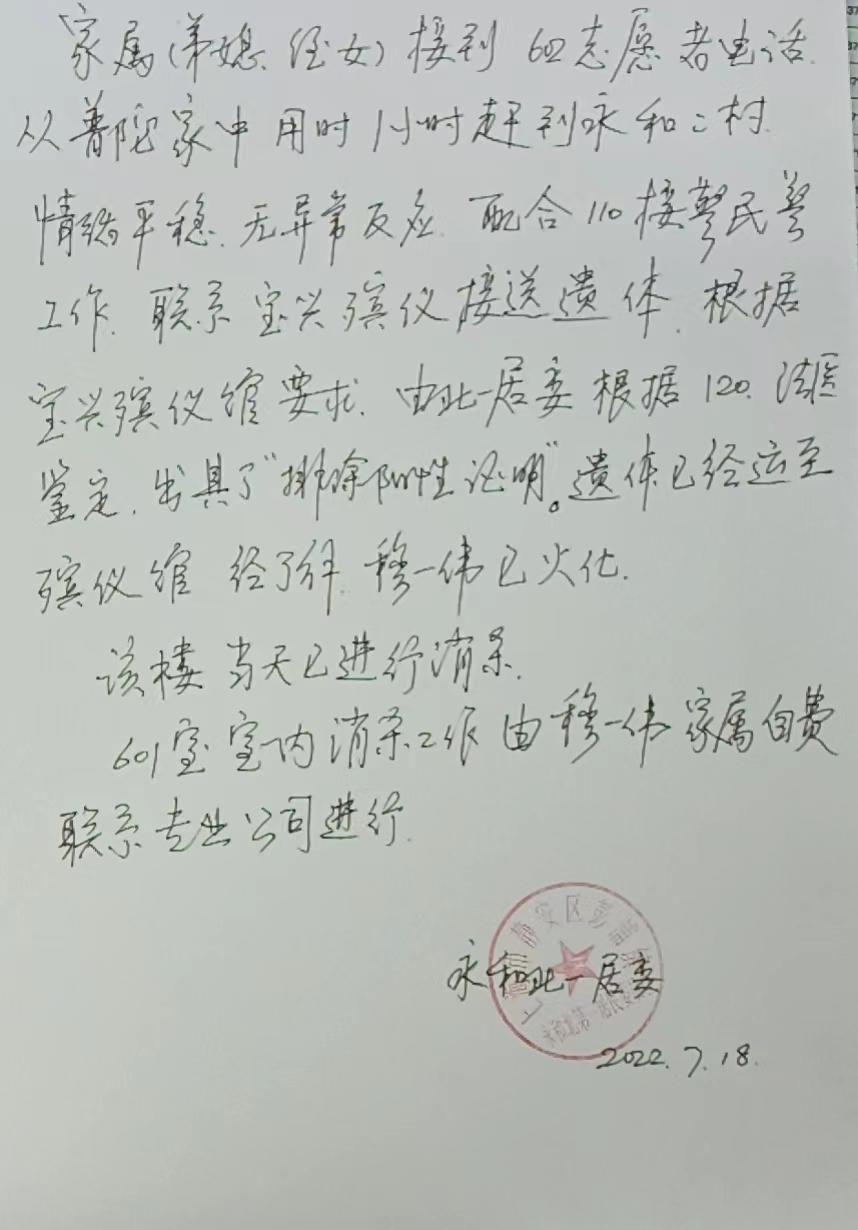 家属(弟媳、侄女)接到602志愿者电话.
从普陀家中用时1小时赶到永和二村.
情绪平稳.无异常反应.配合110接警民警
工作.联系宝兴殡仪接送遗体.根据
宝兴殡仪馆要求.由北一居委根据120.法医
鉴定.出具了“排除阳性证明”。遗体已经运至
殡仪馆 经了解.穆一伟已火化.
该楼当天已进行消杀.
601室室内消杀工作由穆一伟家属自费
联系专业公司进行.
上海市静安区彭浦新
永和北一居委
2022.7.18.